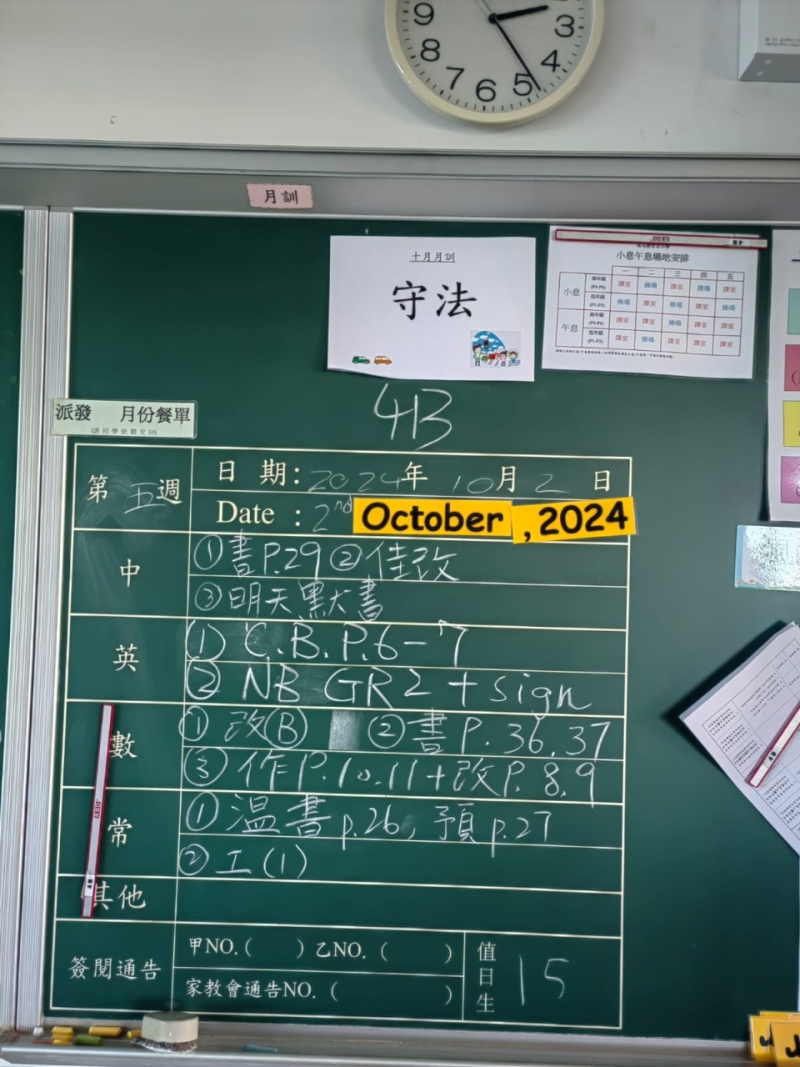 9
3
8
4
7
6
5
月訓
十月月訓
守法
小息午息場地安排
一 二 三 四 五
小息 高年級 (P4-P6) 課室 操場 課室 操場 課室
低年級 (P1-P3) 操場 課室 操場 課室 操場
午息 高年級 (P4-P6) 課室 課室 操場 課室 課室
低年級 (P1-P3) 課室 操場 課室 課室 課室
4B
派發 月份餐單
第五週
日 期:2024年 10月 2 日
Date : 2nd October , 2024
中
①書P.29 ②佳改
③明天默書
英
(1) C.B.P.6-7
② NB GR2 + sign
數
① 改Ⓑ ②書 P. 36,37
③ 作P.10,11+改P. 8,9
常
① 溫書 p.26, 預p.27
② 工(1)
其他
簽閱通告
甲NO.( ) 乙NO. ( )
家教會通告NO. ( )
值日生
15